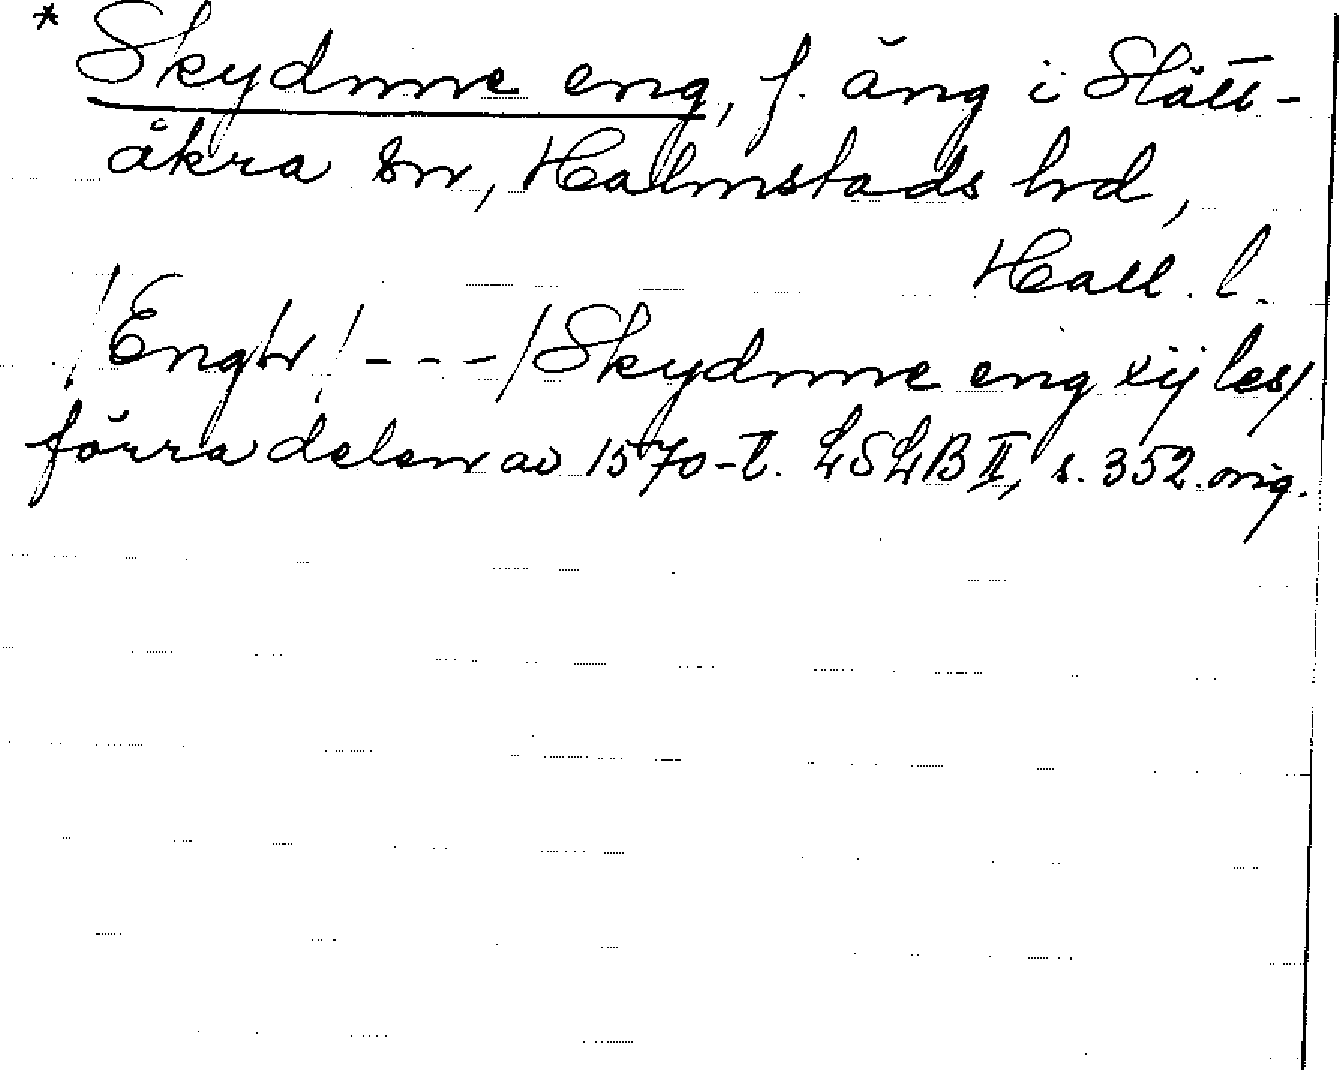 * Skydmne eng, f. äng i Slätt-
åkra sn, Halmstads hd,
Hall. l.
/Engh/ - - - / Skydmne eng xij les/
förra delen av 1570-t. LSLB II, s. 352. orig.